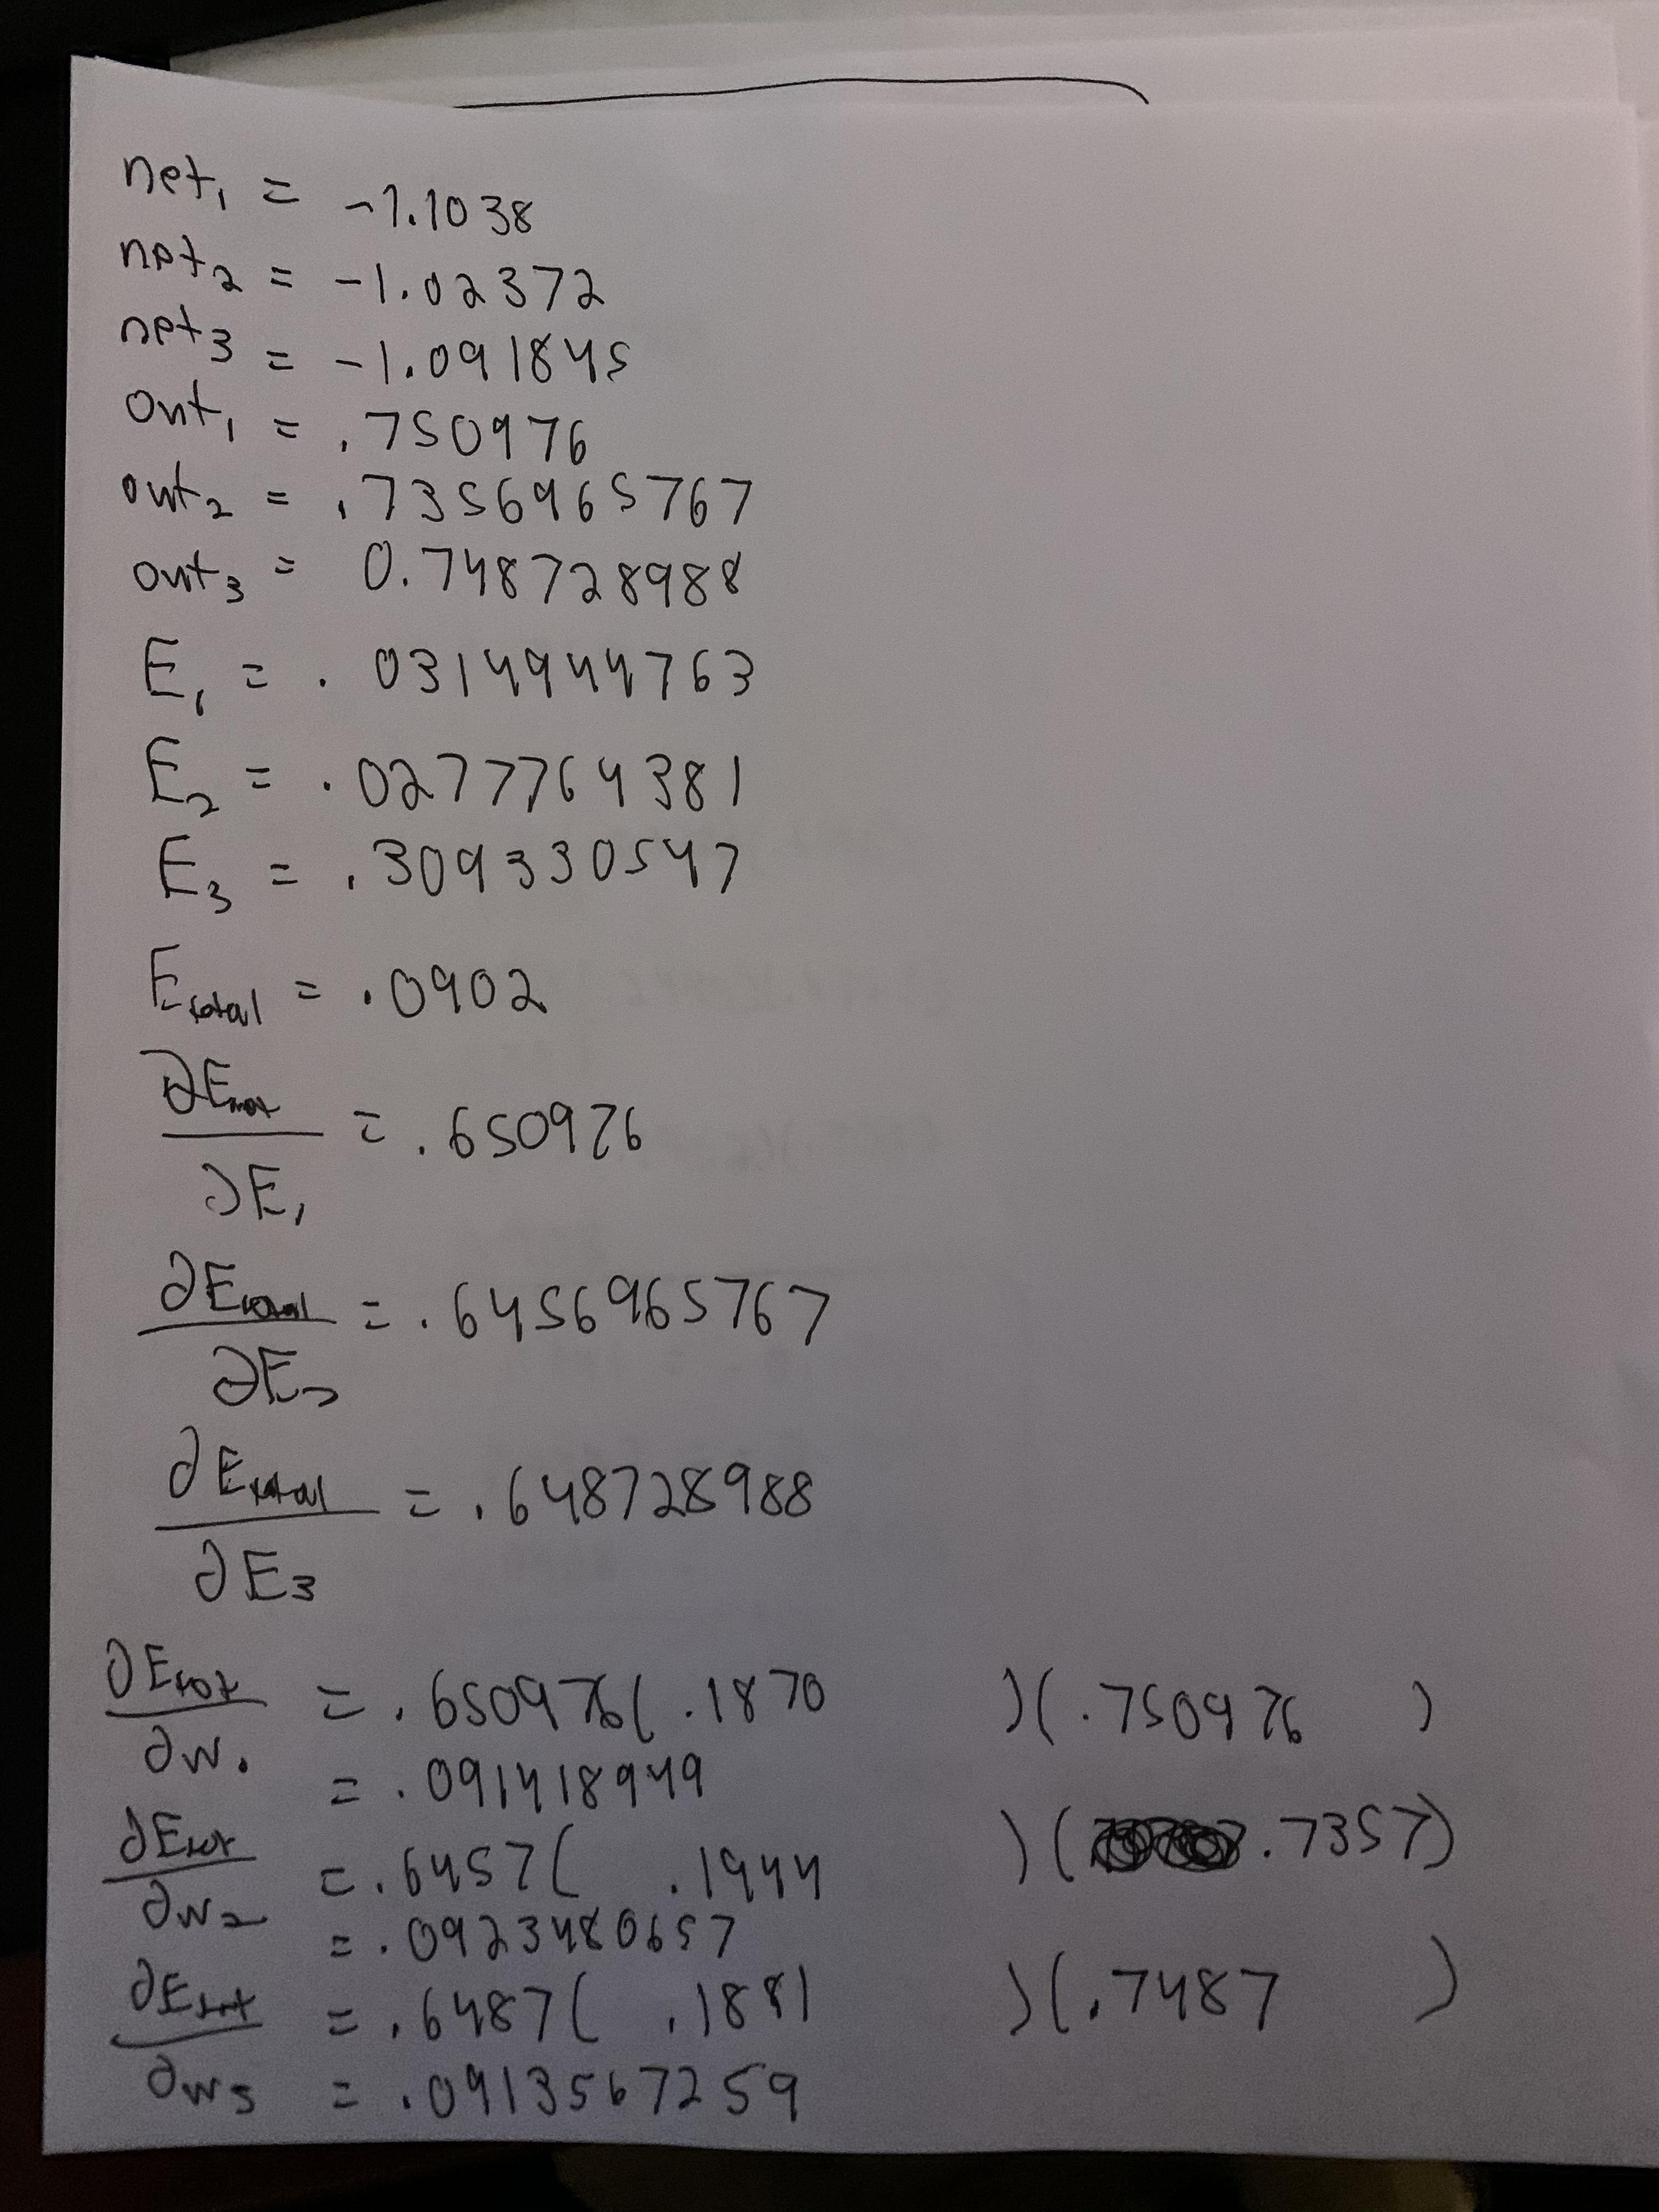 net₁ = -1.1038
net₂ = -1.02372
net₃ = -1.091845
out₁ = .750976
out₂ = .7356965767
out₃ = 0.748728988
E₁ = .03149444763
E₂ = .0277764381
E₃ = .309330547
E_total = .0902
∂E_tot / ∂E₁ = .650976
∂E_total / ∂E₂ = .6456965767
∂E_total / ∂E₃ = .648728988
∂E_tot / ∂w₁ = .650976( .1870 )( .750976 )
= .091418949
∂E_tot / ∂w₂ = .6457( .1944 )( .7357)
= .0923480657
∂E_tot / ∂w₃ = .6487( .1881 )(.7487 )
= .0913567259